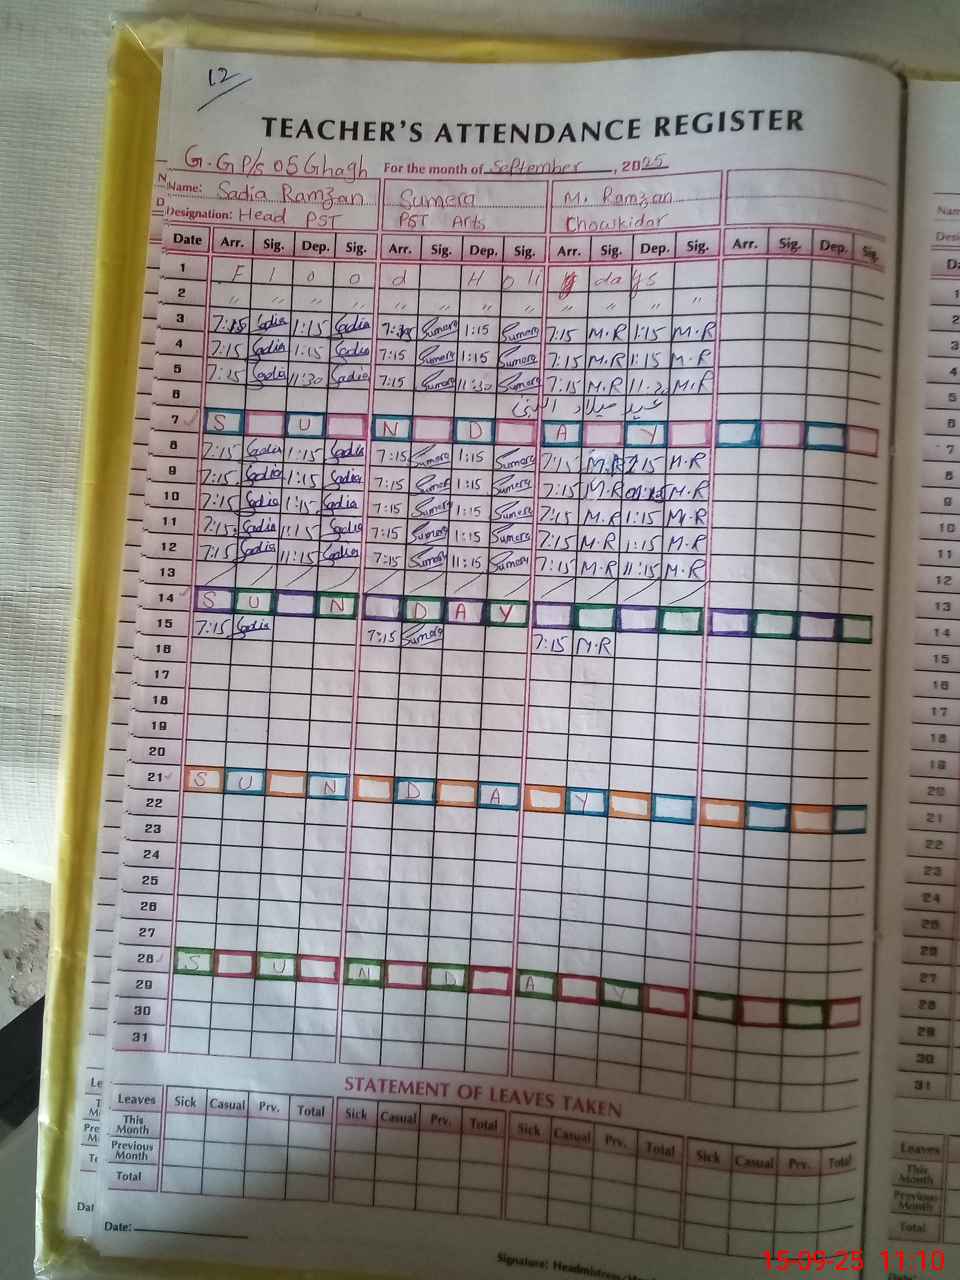 12
TEACHER'S ATTENDANCE REGISTER
G.GP/s 05 Ghagh For the month of September, 2025
Name: Sadia Ramzan Sumera M. Ramzan
Designation: Head PST PST Arts Chowkidar
Date Arr. Sig. Dep. Sig. Arr. Sig. Dep. Sig. Arr. Sig. Dep. Sig. Arr. Sig. Dep. Sig.
1 F l o o d H o li days
2 " " " " " " " " " " "
3 7:15 Sadia 1:15 Sadia Sumera 1:15 Sumera 7:15 M.R 1:15 M.R
4 7:15 Sadia 1:15 Sadia 7:15 Sumera 1:15 Sumera 7:15 M.R 1:15 M.R
5 7:15 Sadia 11:30 Sadia 7:15 Sumera 11:30 Sumera 7:15 M.R M.R
6 عید میلاد النبی
7 S U N D A Y
8 7:15 Sadia 1:15 Sadia 7:15 Sumera 1:15 Sumera 7:15 M.R 1:15 M.R
9 7:15 Sadia 1:15 Sadia 7:15 Sumera 1:15 Sumera 7:15 M.R M.R
10 7:15 Sadia 1:15 Sadia 7:15 Sumera 1:15 Sumera 7:15 M.R 1:15 M.R
11 7:15 Sadia 1:15 Sadia 7:15 Sumera 1:15 Sumera 7:15 M.R 1:15 M.R
12 7:15 Sadia 11:15 Sadia 7:15 Sumera 11:15 Sumera 7:15 M.R 11:15 M.R
13
14 S U N D A Y
15 7:15 Sadia 7:15 Sumera 7:15 M.R
16
17
18
19
20
21 S U N D A Y
22
23
24
25
26
27
28 S U N D A Y
29
30
31
STATEMENT OF LEAVES TAKEN
Leaves Sick Casual Prv. Total Sick Casual Prv. Total Sick Casual Prv. Total Sick Casual Prv. Total
This Month
Previous Month
Total
Date:
Signature: Headmistress/
15-09-25 11:10